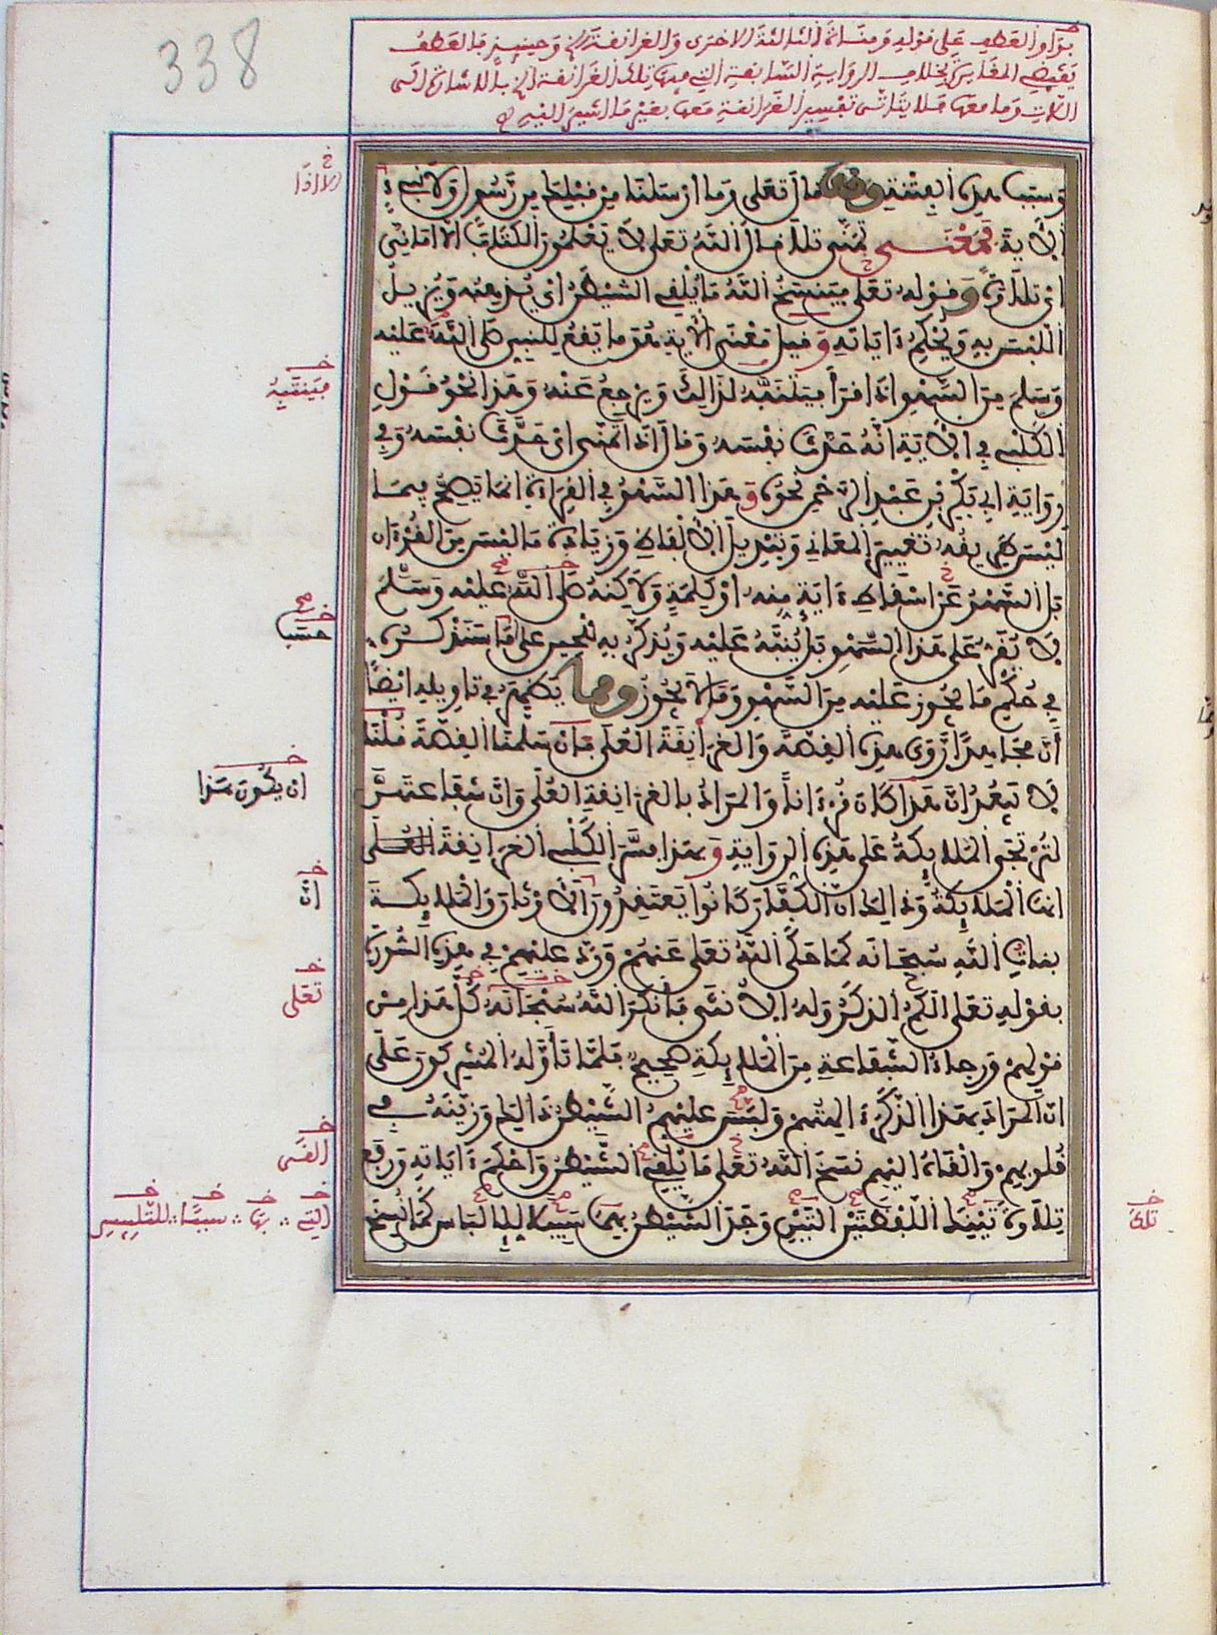 338
بواو العطف على قوله ومناة الثالثة الاخرى والغرانقة الخ وحينئذ فالعطف
يقتضى المغايرة بخلاف الرواية السابقة التى فيها تلك الغرانقة الخ بالاشارة الى
اللات وما معها فلا يتاتى تفسير الغرانقة معها بغير ما اشير اليه
وسبب هذه الفتنة وقد قال تعلى وما ارسلنا من قبلك من رسول ولا نبىء
الاية فمعنى تمنى تلا قال الله تعلى لا يعلمون الكتاب الا امانى
اى تلاوة وقوله تعلى فينسخ الله ما يلقى الشيطن اى يذهبه ويزيل
اللبس به ويحكم ءاياته وقيل معنى الاية هو ما يقع للنبى صلى الله عليه
وسلم من السهو اذا قرأ فيتنبه لذالك ويرجع عنه وهذا نحو قول
الكلبى فى الاية انه حدث نفسه وقال اذا تمنى اى حدث نفسه وفى
رواية ابى بكر بن عبد الرحمن نحوه وهذا السهو فى القراءة انما يصح فيما
ليس طريقه تغيير المعانى وتبديل الالفاظ وزيادة ما ليس من القرءان
بل السهو عن اسقاط ءاية منه او كلمة ولاكنه صلى الله عليه وسلم
لا يقر على هذا السهو بل ينبه عليه ويذكر به للحين على ما سنذكره
فى حكم ما يجوز عليه من السهو وما لا يجوز ومما يظهر فى تاويله ايضا
أن مجاهدا روى هذه القصة والغرانقة العلى فان سلمنا القصة قلنا
لا يبعد ان هذا كان قرءانا والمراد بالغرانقة العلى وان شفاعتهن
لترتجى الملايكة على هذه الرواية وبهذا فسر الكلبى الغرانقة العلى
انها الملايكة وذالك ان الكفار كانوا يعتقدون الاوثان والملايكة
بنات الله سبحانه كما حكى الله تعلى عنهم ورد عليهم فى هذه السورة
بقوله تعلى الكم الذكر وله الانثى فانكر الله سبحانه كل هذا من
قولهم ورجاء الشفاعة من الملايكة صحيح فلما تأوله المشركون على
ان المراد بهذا الذكر ءالهتهم ولبس عليهم الشيطن ذالك وزينه فى
قلوبهم والقاه اليهم نسخ الله تعلى ما يلقى الشيطن واحكم ءاياته ورفع
تلاوة تينك اللفظتين التين وجد الشيطن بهما سبيلا للالباس كما نسخ
الا اذا
فينتبه
حسب
ان يكون هذا
ان
تعلى
القى
التى ∴ بها ∴ سببا ∴ للتلبيس
تلك